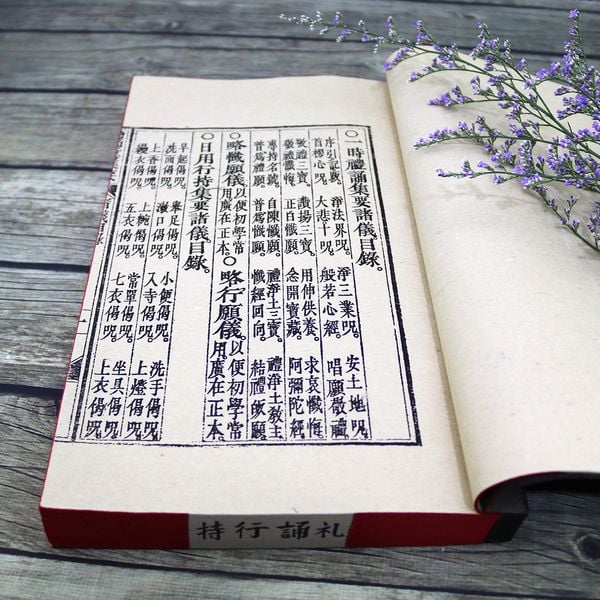 〇一時禮誦集要諸儀目錄。
序引記數。淨法界呪。淨三業呪。安土地呪。
首楞心呪。大悲十呪。般若心經。唱願敬禮。
敬禮三寶。讚揚三寶。用伸供養。求哀懺悔。
敬禮懺悔。正白懺願。念開寶藏。阿彌陀經。
專持名號。自陳懺願。禮淨土三寶。禮淨土教主。
普爲禮願。普爲懺願。懺經回向。結禮皈願。
〇略懺願儀以便初學常用廣在正本〇略行願儀。以便初學常用廣在正本。
〇日用行持集要諸儀目錄。
早起偈呪。舉足偈呪。小便偈呪。洗手偈呪。
洗面偈呪。漱口偈呪。入寺偈呪。上燈偈呪。
上香偈呪。上碗偈呪。常單偈呪。坐具偈呪。
縵衣偈呪。五衣偈呪。七衣偈呪。上衣偈呪。
礼誦行持